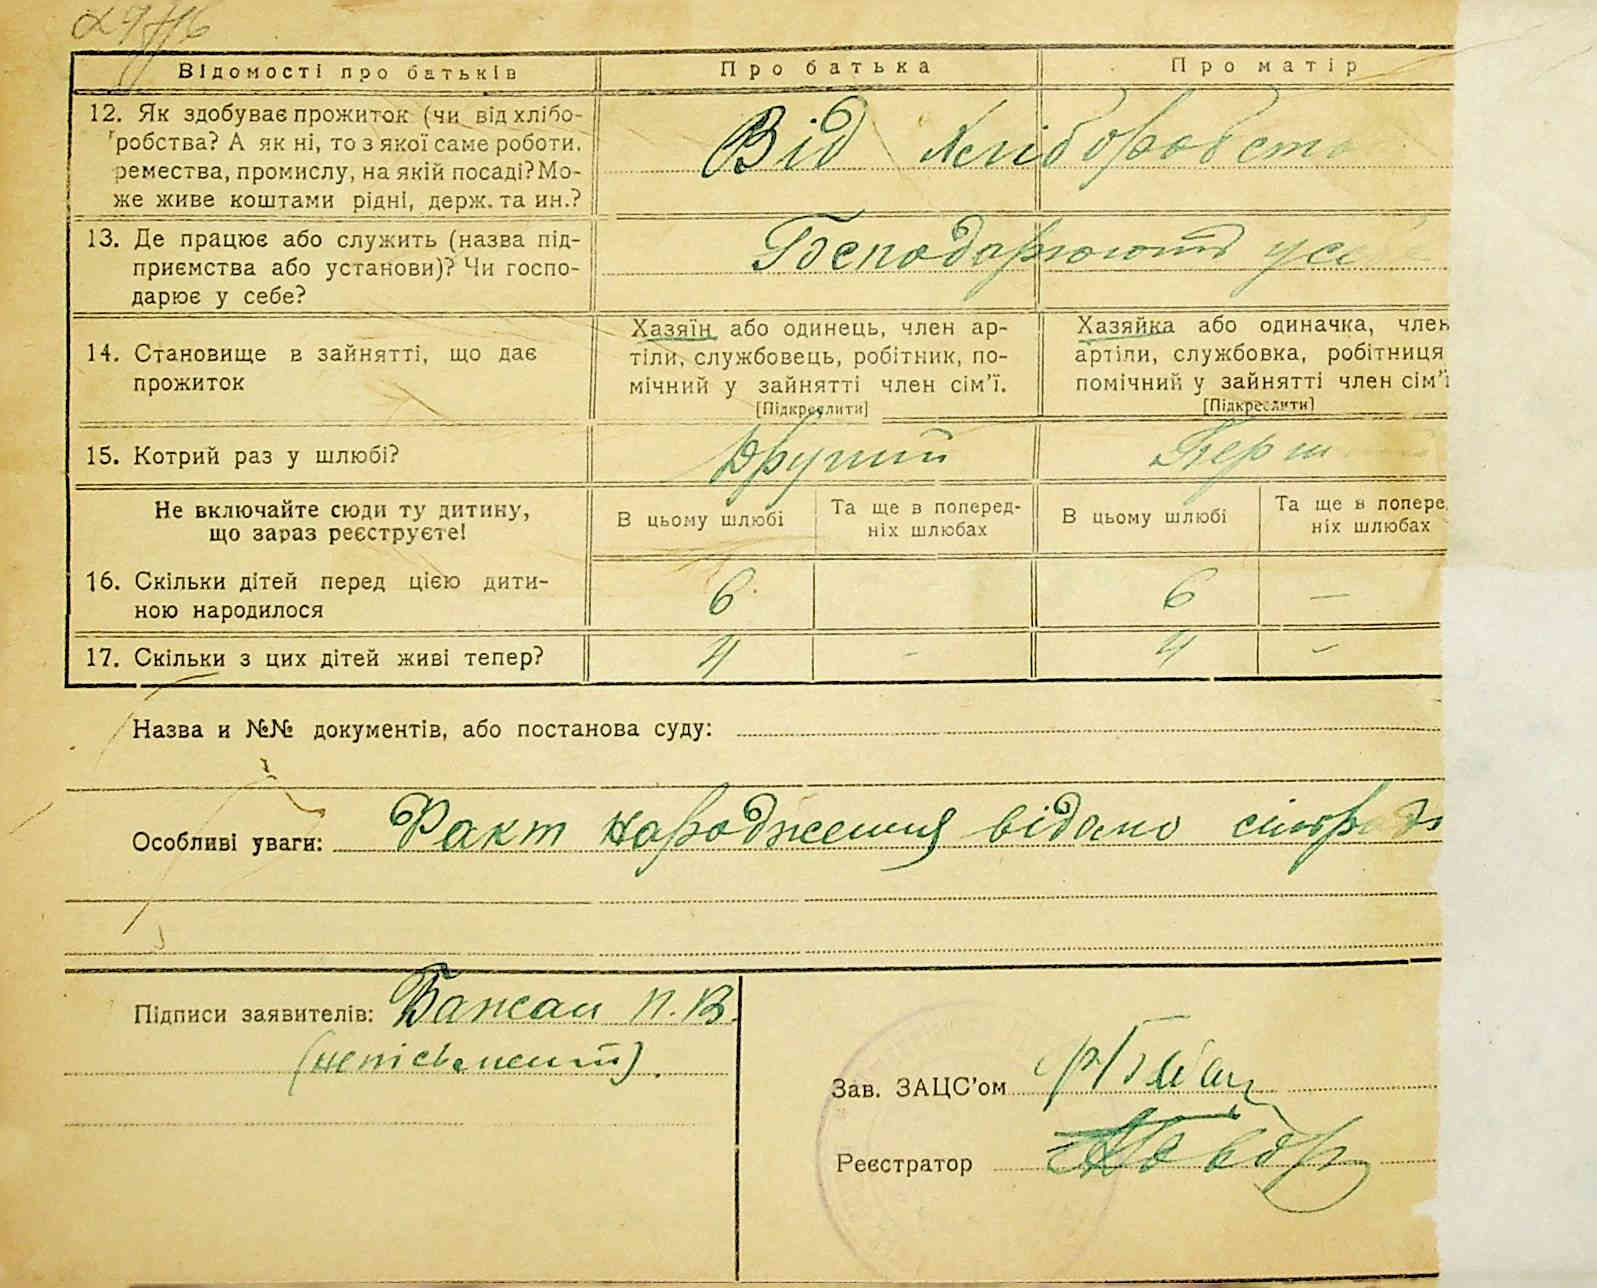 Відомості про батьків
Про батька
Про матір
12. Як здобуває прожиток (чи від хлібо-
робства? А як ні, то з якої саме роботи,
ремества, промислу, на якій посаді? Мо-
же живе коштами рідні, держ. та ин.?
Від хліборобств
13. Де працює або служить (назва під-
приємства або установи)? Чи госпо-
дарює у себе?
Господарюють у се
14. Становище в зайнятті, що дає
прожиток
Хазяїн або одинець, член ар-
тіли, службовець, робітник, по-
мічний у зайнятті член сім'ї.
[Підкреслити]
Хазяйка або одиначка, член
артіли, службовка, робітниця
помічний у зайнятті член сім'ї
[Підкреслити]
15. Котрий раз у шлюбі?
Другий
Перш
Не включайте сюди ту дитину,
що зараз реєструєте!
В цьому шлюбі
Та ще в поперед-
ніх шлюбах
В цьому шлюбі
Та ще в попере
ніх шлюбах
16. Скільки дітей перед цією дити-
ною народилося
6
6
—
17. Скільки з цих дітей живі тепер?
4
-
4
-
Назва и №№ документів, або постанова суду:
Особливі уваги: Факт народження відамо
Підписи заявителів: Бажан П. В.
(непісьменний).
Зав. ЗАЦС'ом
Реєстратор